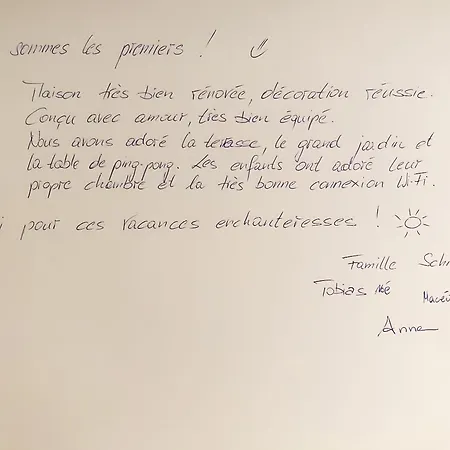 sommes les premiers !
Maison très bien rénovée, décoration réussie.
Conçu avec amour, très bien équipé.
Nous avons adoré la terrasse, le grand jardin et
la table de ping-pong. Les enfants ont adoré leur
propre chambre et la très bonne connexion Wi-Fi.
pour ces vacances enchanteresses !
Famille
Tobias Noé
Anne